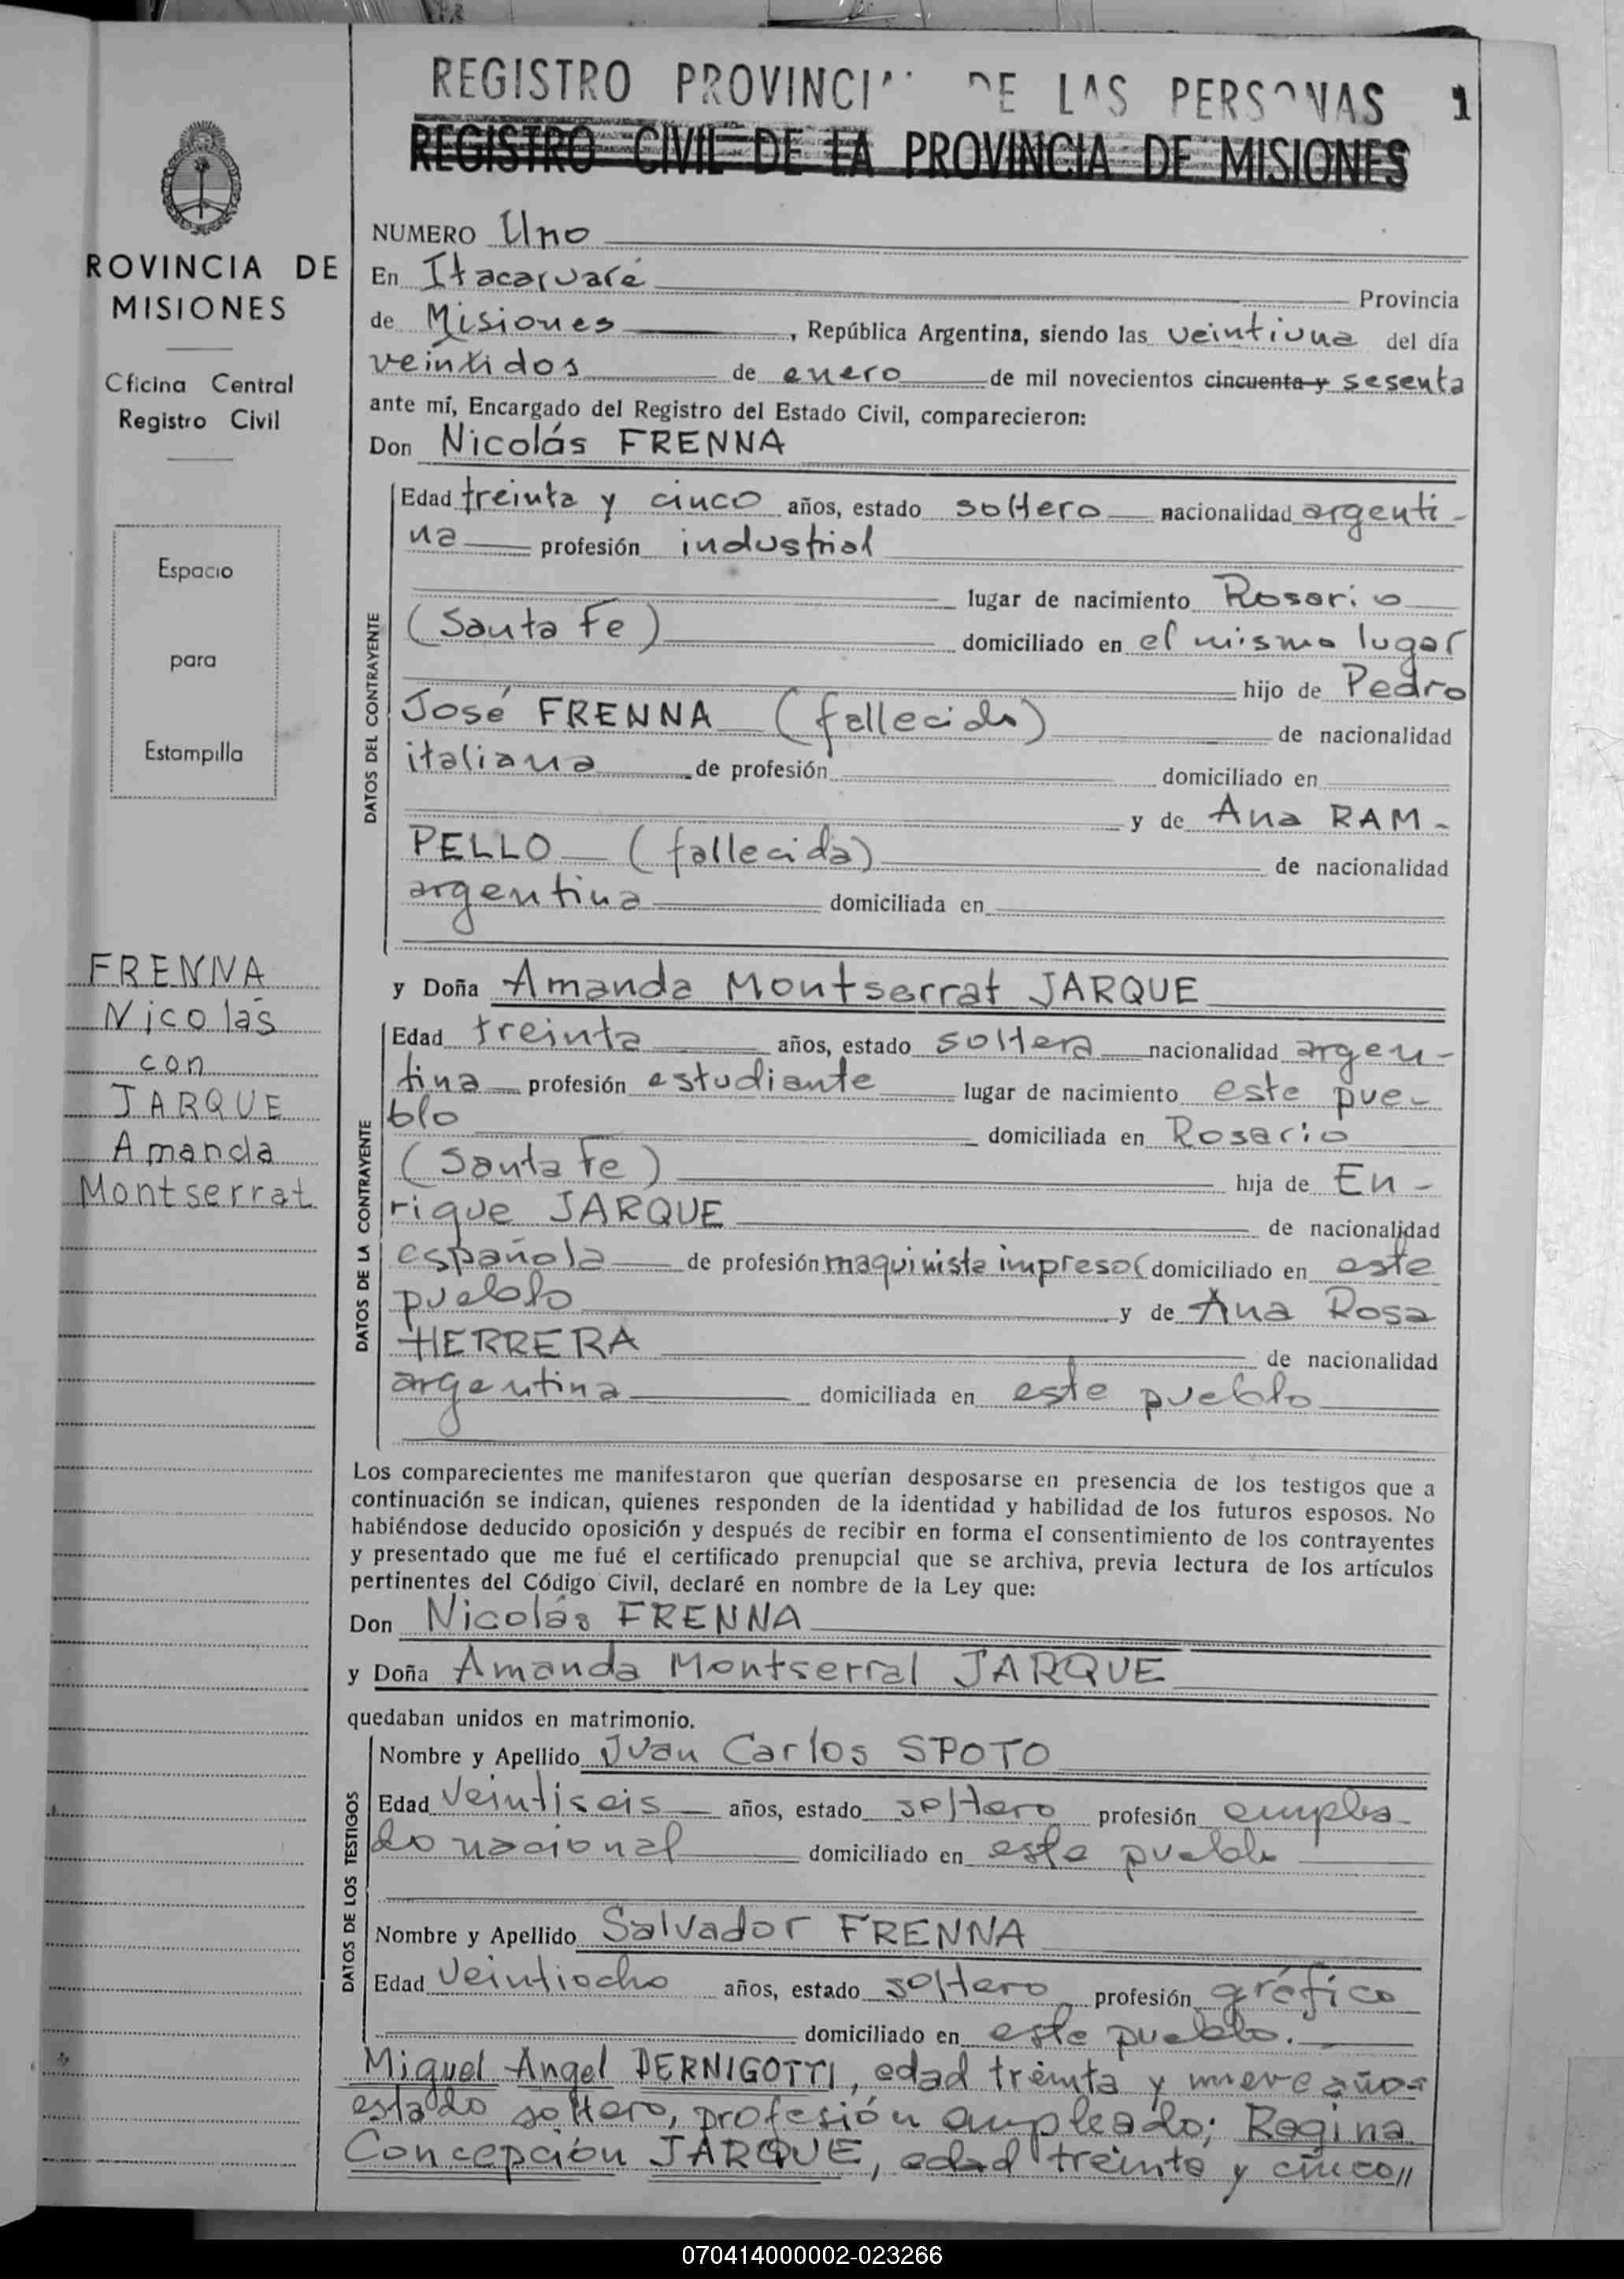 REGISTRO PROVINCI DE LAS PERSONAS 1
REGISTRO CIVIL DE LA PROVINCIA DE MISIONES
ROVINCIA DE
MISIONES
Oficina Central
Registro Civil
Espacio
para
Estampilla
FRENNA
Nicolás
con
JARQUE
Amanda
Montserrat
NUMERO Uno
En Itacaruaré Provincia
de Misiones, República Argentina, siendo las veintiuna del día
veintidos de enero de mil novecientos cincuenta y sesenta
ante mí, Encargado del Registro del Estado Civil, comparecieron:
Don Nicolás FRENNA
DATOS DEL CONTRAYENTE
Edad treinta y cinco años, estado soltero nacionalidad argenti-
na profesión industrial
lugar de nacimiento Rosario
(Santa Fe) domiciliado en el mismo lugar
hijo de Pedro
José FRENNA (fallecido) de nacionalidad
italiana de profesión domiciliado en
y de Ana RAM-
PELLO (fallecida) de nacionalidad
argentina domiciliada en
y Doña Amanda Montserrat JARQUE
DATOS DE LA CONTRAYENTE
Edad treinta años, estado soltera nacionalidad argen-
tina profesión estudiante lugar de nacimiento este pue-
blo domiciliada en Rosario
(Santa Fe) hija de En-
rique JARQUE de nacionalidad
española de profesión maquinista impresor domiciliado en este
pueblo y de Ana Rosa
HERRERA de nacionalidad
argentina domiciliada en este pueblo
Los comparecientes me manifestaron que querían desposarse en presencia de los testigos que a
continuación se indican, quienes responden de la identidad y habilidad de los futuros esposos. No
habiéndose deducido oposición y después de recibir en forma el consentimiento de los contrayentes
y presentado que me fué el certificado prenupcial que se archiva, previa lectura de los artículos
pertinentes del Código Civil, declaré en nombre de la Ley que:
Don Nicolás FRENNA
y Doña Amanda Montserrat JARQUE
quedaban unidos en matrimonio.
DATOS DE LOS TESTIGOS
Nombre y Apellido Juan Carlos SPOTO
Edad Veintiseis años, estado soltero profesión emplea-
do nacional domiciliado en este pueblo
Nombre y Apellido Salvador FRENNA
Edad Veintiocho años, estado soltero profesión gráfico
domiciliado en este pueblo.
Miguel Angel DERNIGOTTI, edad treinta y nueve años
estado soltero, profesión empleado; Regina
Concepción JARQUE, edad treinta y cinco//
070414000002-023266